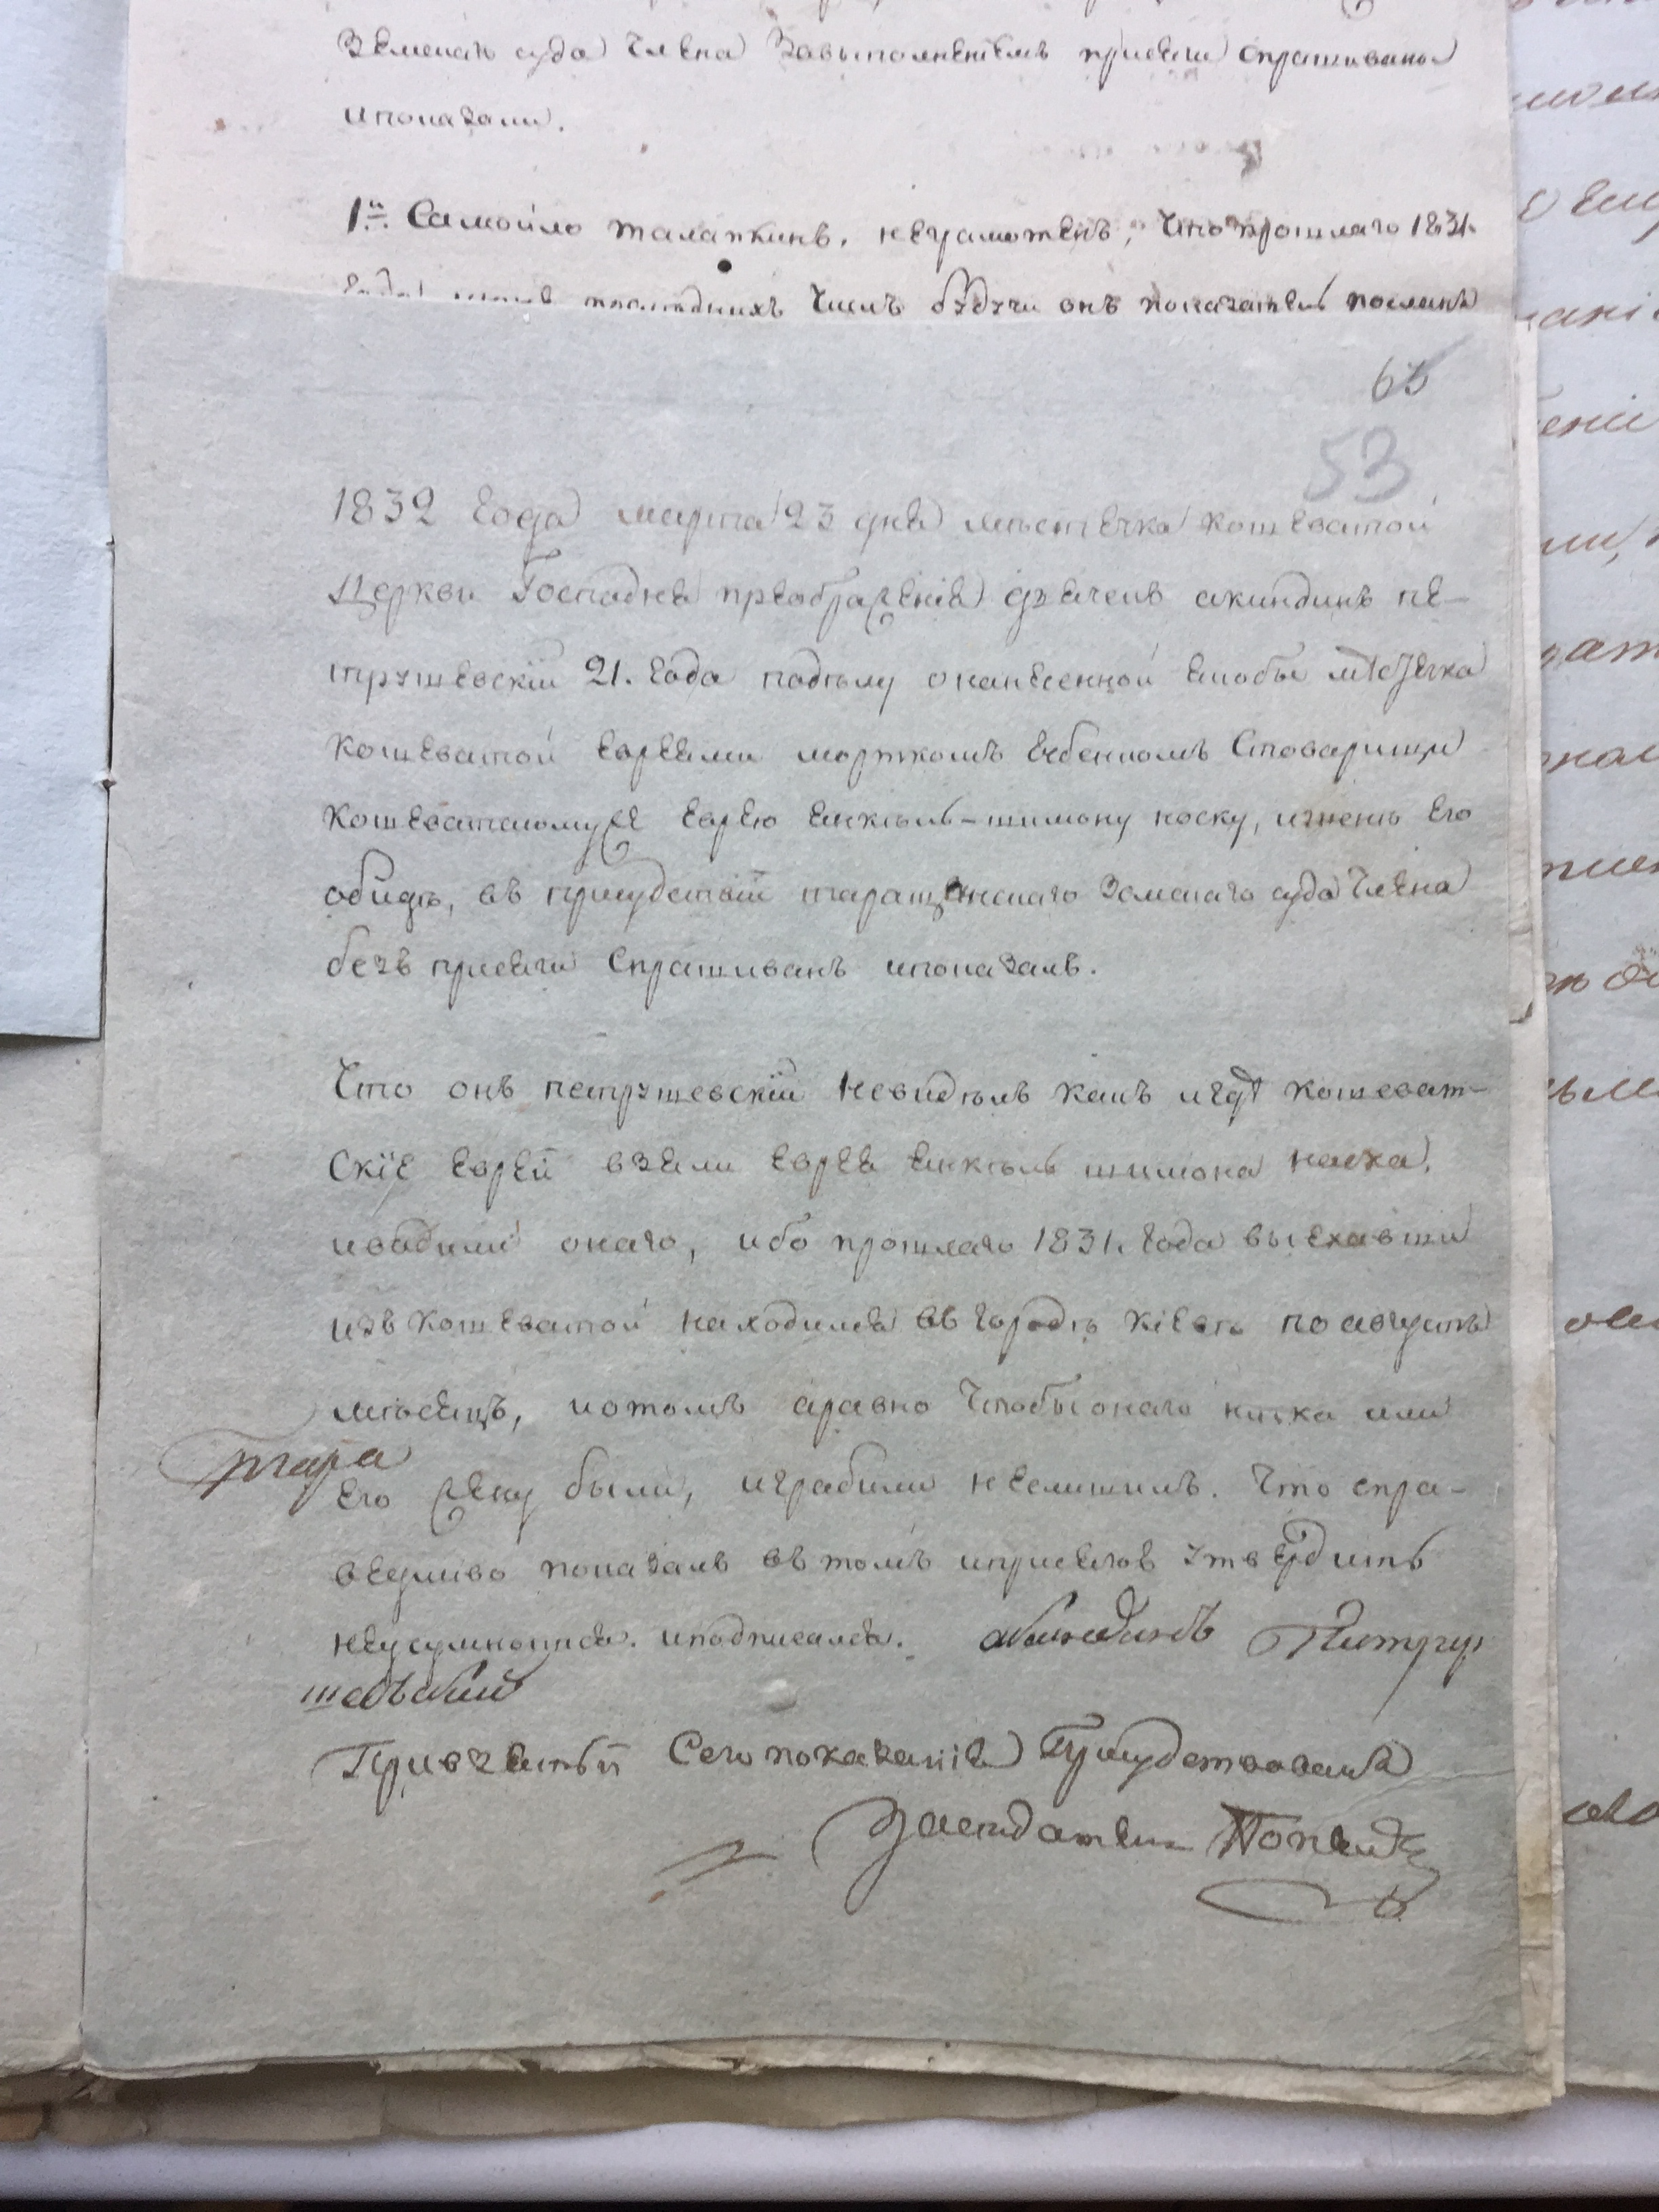 Земскаго суда Члена Завыполненіемъ присяги спрашиваны
ипоказали.
1й. Самойло талапкинъ, неграмотенъ, что прошлаго 1831.
последнихъ Чиселъ будучи онъ показатель посланъ
65
53
1832 Года марта 23 дня мѣстечка кошеватой
Церкви Господня преображенія дьячекъ акиндинъ пе-
трушевскій 21. Года подѣлу онанесенной якобы мѣстечка
Кошеватой евреями моржкомъ Стоварищи
Кошеватскомуже еврею янкель-шимону носку, ижень его
обидѣ, въ присудствіи таращанскаго Земскаго суда Члена
безъ присяги Спрашиванъ ипоказалъ.
Что онъ петрушевскій невидѣлъ какъ игдѣ кошеват-
Скіе еврей взяли еврея янкель шимона носка,
иводили онаго, ибо прошлаго 1831. Года выехавши
изъ Кошеватой находился въ городѣ кіевѣ по августъ
мѣсяцъ, иотомъ аравно Чтобы онаго носка или
его жену были, играбили неслишилъ. Что спра-
ведливо показалъ въ томъ иприсягою утвердить
неусумнюися. иподписался. акиндинъ Питру
шевский
тара
Привзятьи Сего показанія Присудствовалъ
Заседатель